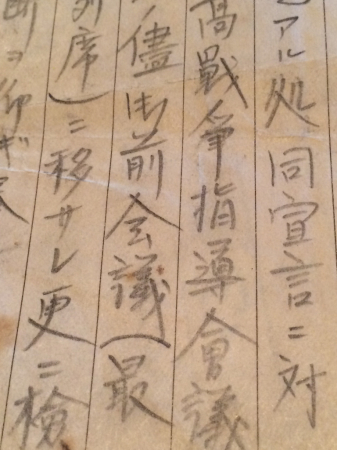 アル処同宣言ニ対
高戰爭指導會議
ノ儘御前会議(最
列席)ニ移サレ更ニ検
断ヲ仰ギ